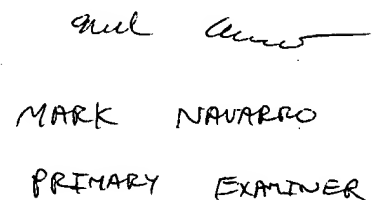 MARK NAVARRO
PRIMARY EXAMINER